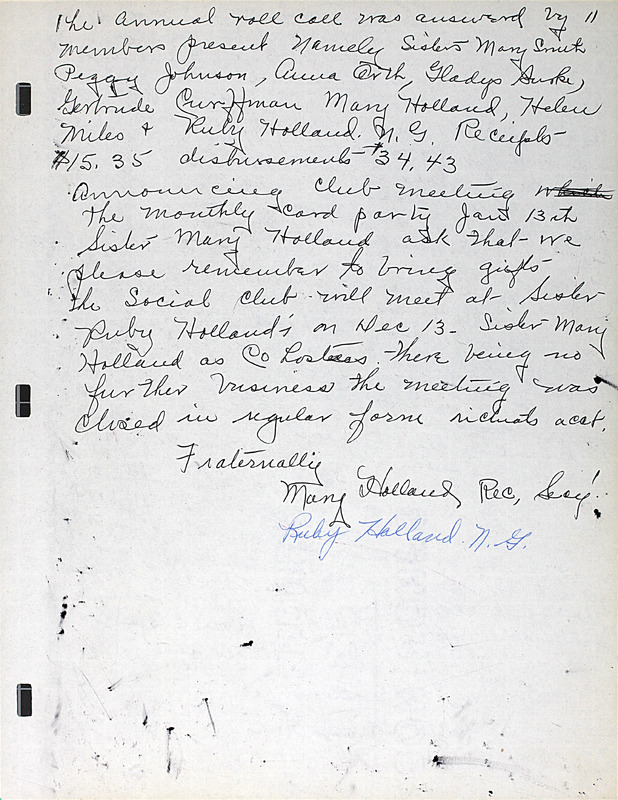 The Annual roll call was answerd by 11
members present Namely Sisters Mary Smith
Peggy Johnson, Anna Orth, Gladys
Gertrude Curffman Mary Holland, Helen
Miles & Ruby Holland. N.G. Receipts
$15.35 disbursements $34.43
Announcing club meeting
the monthly card party Jan 13th
Sister Mary Holland ask that we
please remember to bring gifts
the Social club will meet at Sister
Ruby Holland's on Dec 13 - Sister Mary
Holland as Co hostess. There being no
further business the meeting was
Closed in regular form
Fraternally
Mary Holland, Rec, Secy.
Ruby Holland. N.G.